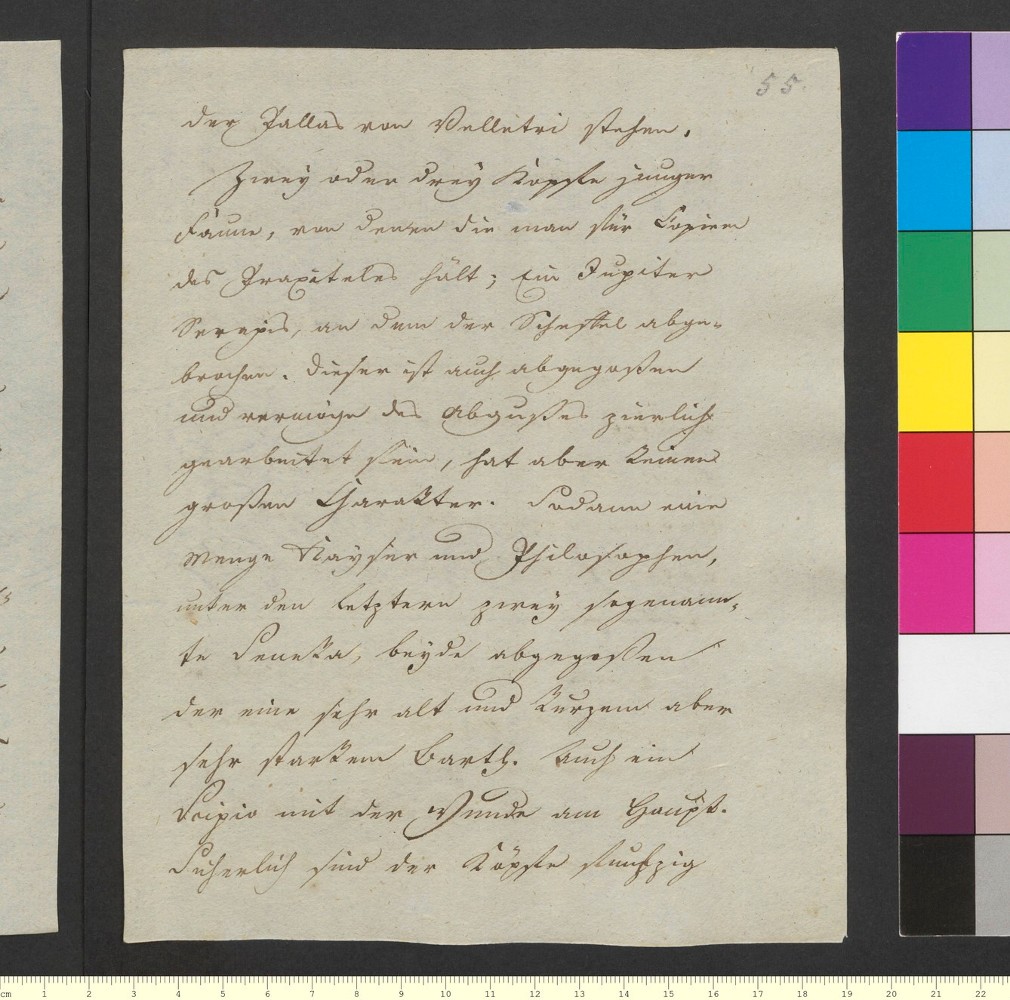 55.
der Pallas von Velletri stehen.
Zwey oder drey Köpfe junger
Faune, von denen die man für Copieen
des Praxiteles hält; Ein Jupiter
Serapis, an dem der Scheffel abge-
brochen. Dieser ist auch abgegoßen
und vermöge des Abgußes zierlich
gearbeitet fein, hat aber keinen
großen Charakter. Sodann eine
Menge Kayser und Philosophen,
unter den letztern zwey sogenann-
te Seneka, beyde abgegoßen
der eine sehr alt und kurzem aber
sehr starkem Barth. Auch ein
Scipio mit der Wunde am Haupt.
Sicherlich sind der Köpfe funfzig